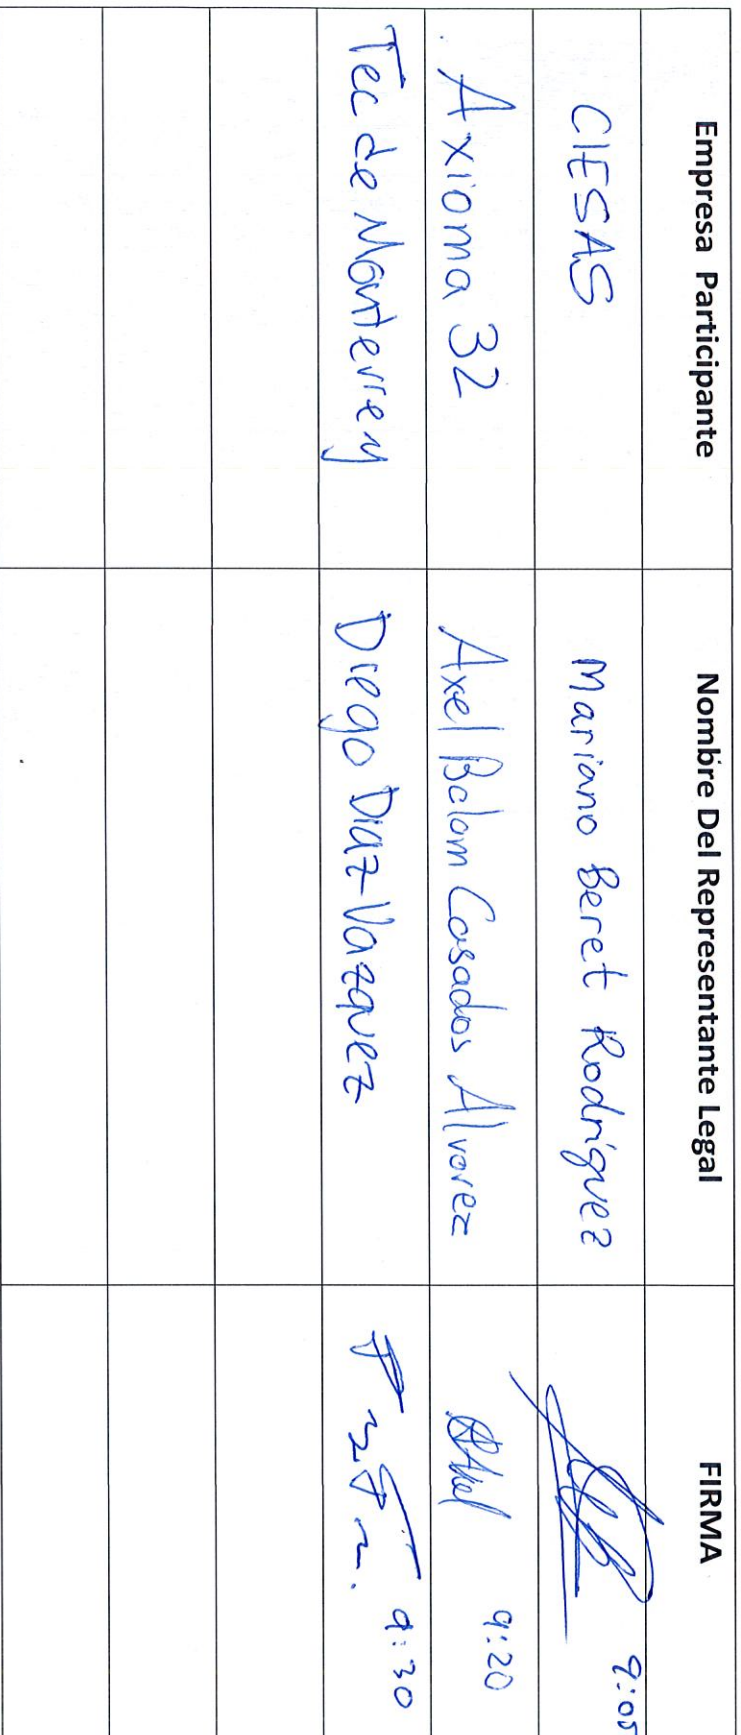 Empresa Participante Nombre Del Representante Legal FIRMA
CIESAS Mariano Beret Rodríguez 9:05
Axioma 32 Axel Balam Casados Alvarez 9:20
Tec de Monterrey Diego Diaz Vazquez 9:30